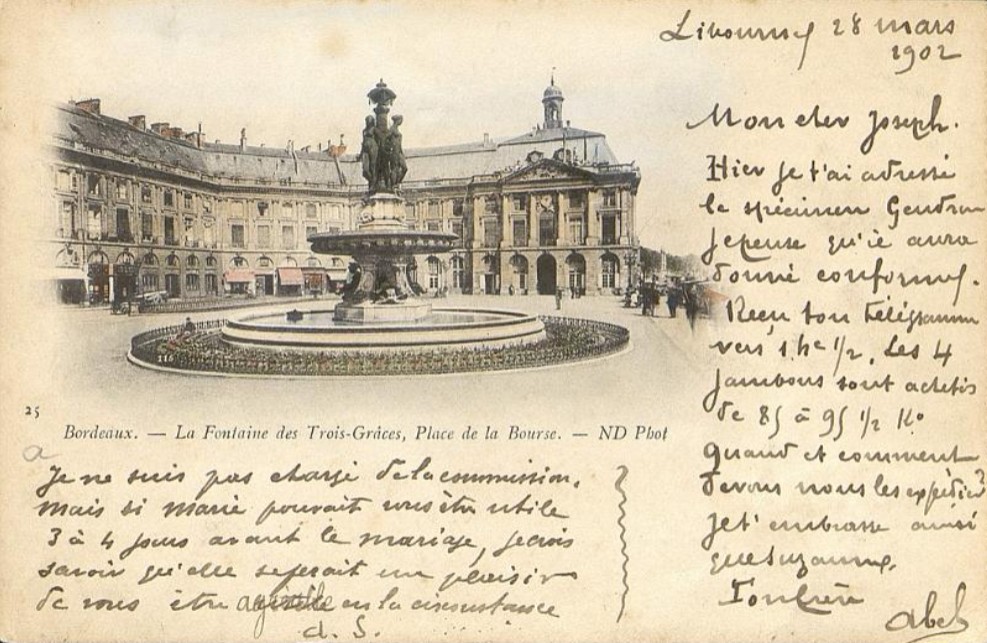 Libourne, 28 mars
1902
Mon cher Joseph.
Hier je t'ai adressé
le spécimen Gendron
Je pense qu'il aura
donné conforme.
Reçu ton télégramme
vers 1 he 1/2. Les 4
jambons sont achetés
de 85 à 95 1/2 Ko
Quand et comment
devons nous les expédier?
Je t'embrasse ainsi
que Suzanne.
Ton frère
Abel
116
25
Bordeaux. — La Fontaine des Trois-Grâces, Place de la Bourse. — ND Phot
a
Je ne suis pas chargé de la commission,
mais si Marie pouvait vous être utile
3 à 4 jours avant le mariage, je crois
savoir qu'elle se ferait un plaisir
de vous être agréable en la circonstance
d. S.